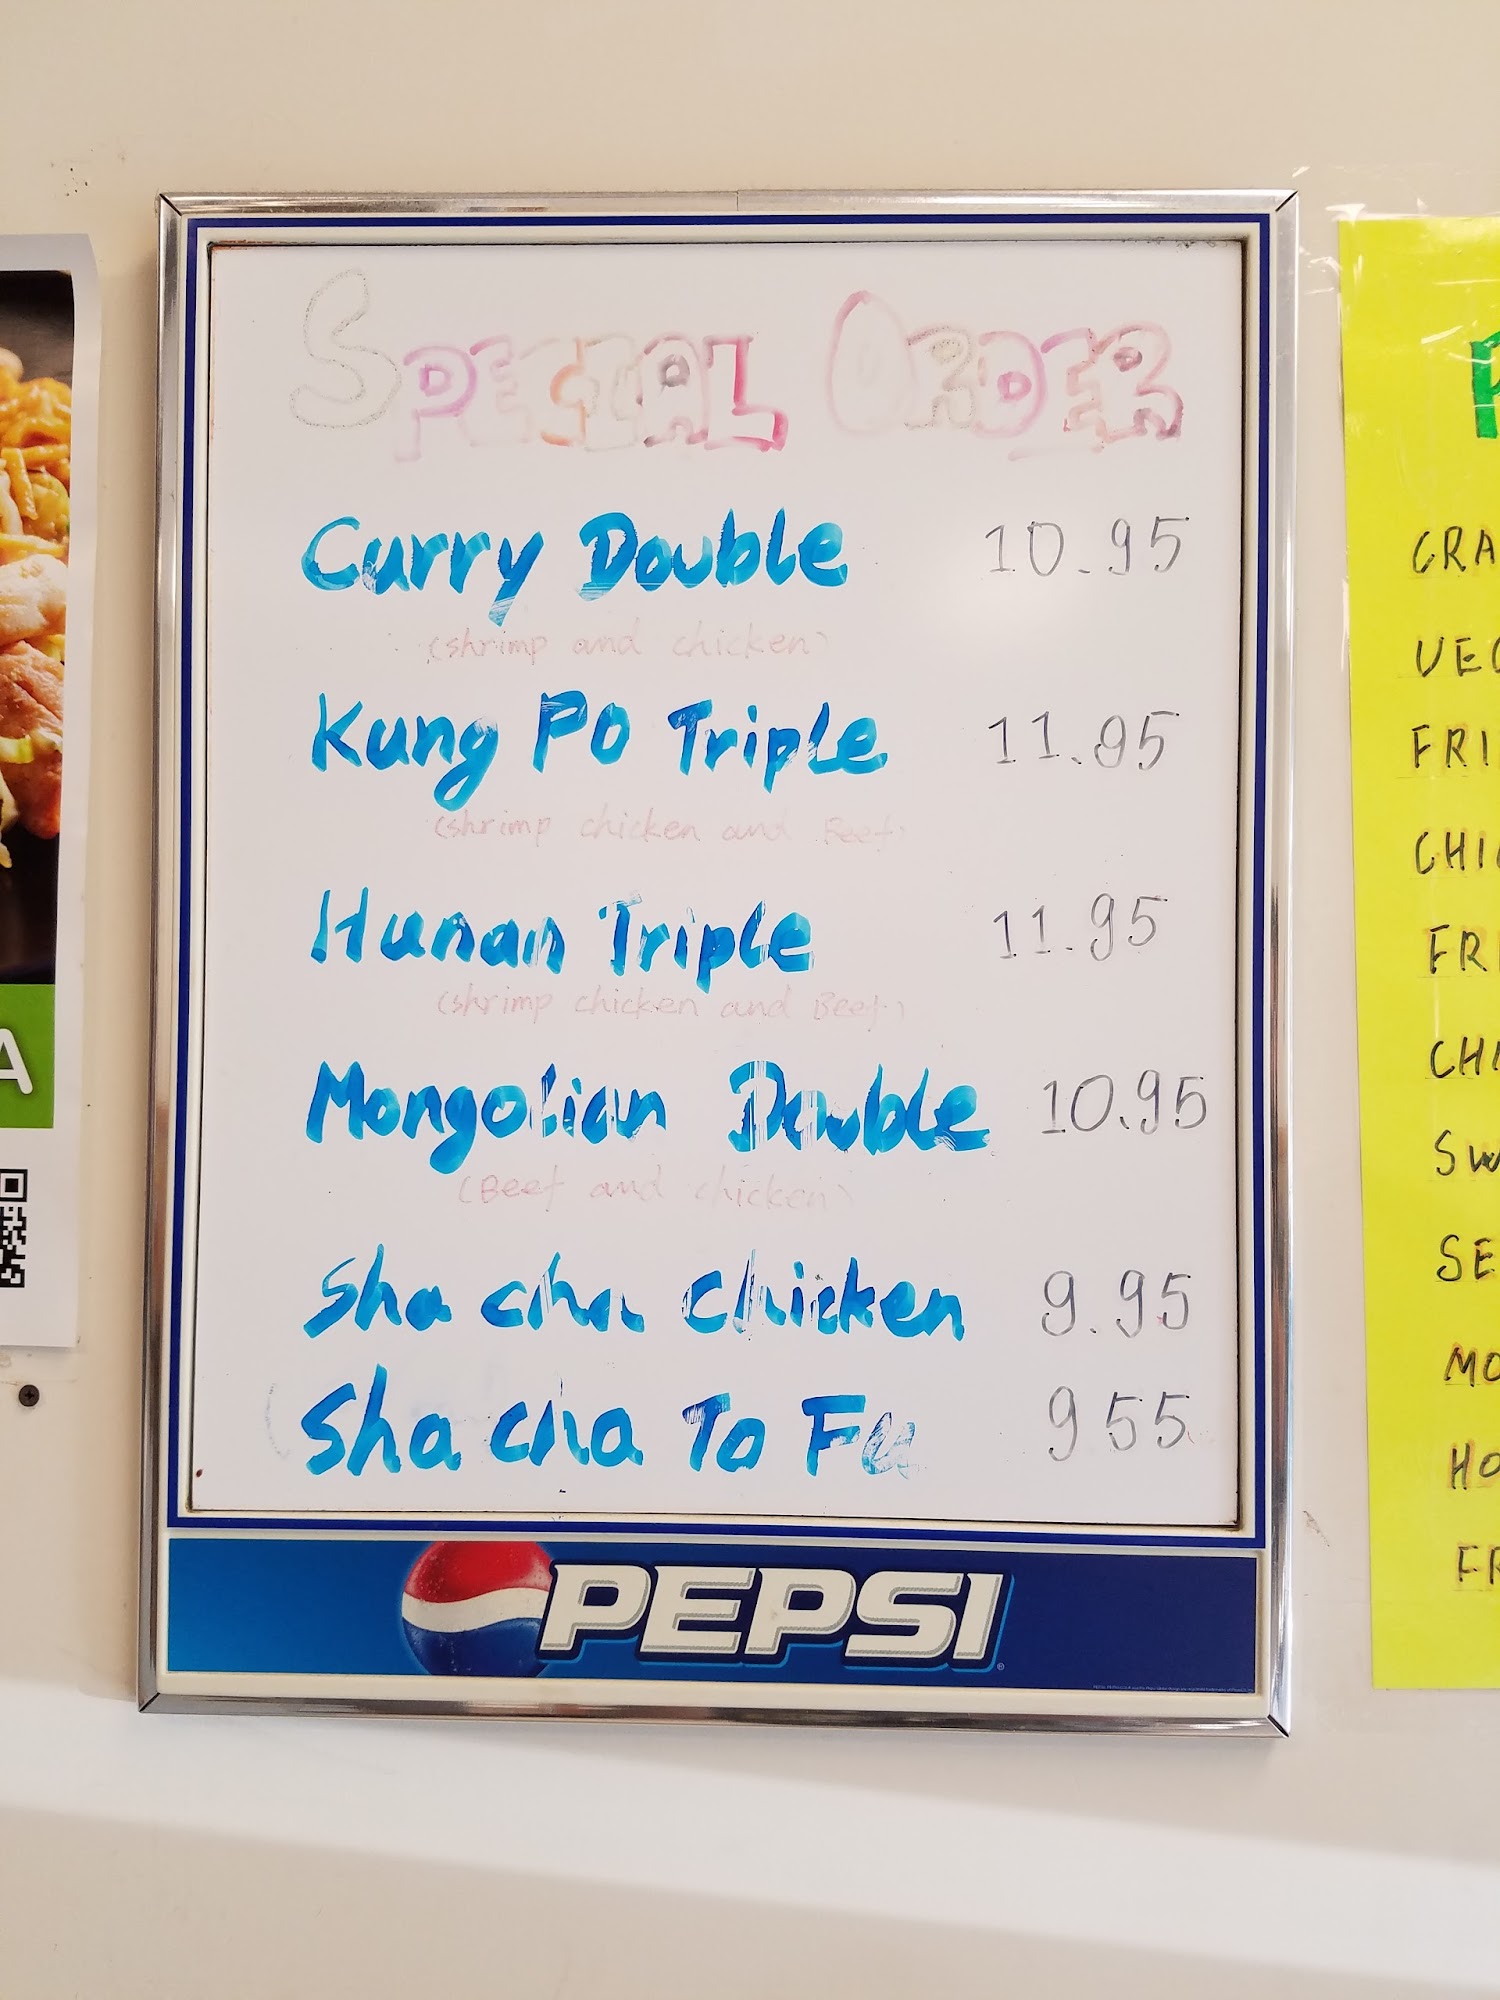 SPECIAL ORDER
Curry Double 10.95
(shrimp and chicken)
Kung PO Triple 11.95
(shrimp chicken and Beef)
Hunan Triple 11.95
(shrimp chicken and Beef)
Mongolian Double 10.95
(Beef and chicken)
Sha cha chicken 9.95
Sha cha To Fu 9 55
PEPSI
A
CRA
VEG
FRI
CHIC
FRI
CHI
SW
SE
MO
HO
FR